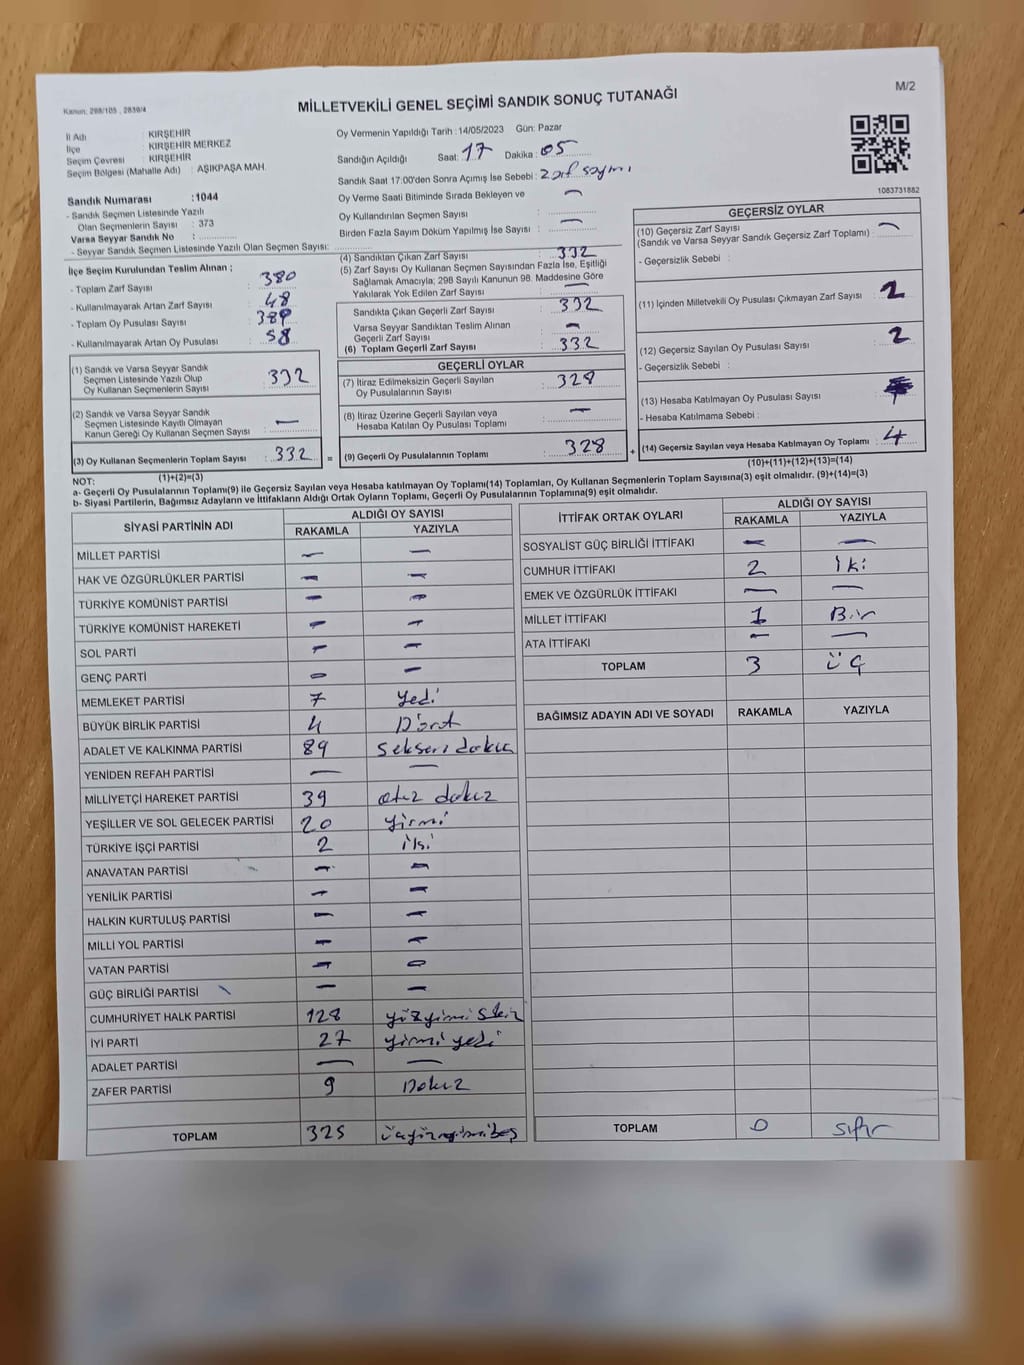 M/2
Kanun: 298/105 , 2839/4
MİLLETVEKİLİ GENEL SEÇİMİ SANDIK SONUÇ TUTANAĞI
İl Adı : KIRŞEHİR
İlçe : KIRŞEHİR MERKEZ
Seçim Çevresi : KIRŞEHİR
Seçim Bölgesi (Mahalle Adı) : AŞIKPAŞA MAH.
Sandık Numarası :1044
- Sandık Seçmen Listesinde Yazılı
Olan Seçmenlerin Sayısı : 373
Varsa Seyyar Sandık No :
- Seyyar Sandık Seçmen Listesinde Yazılı Olan Seçmen Sayısı:
Oy Vermenin Yapıldığı Tarih :14/05/2023 Gün: Pazar
Sandığın Açıldığı Saat: 17 Dakika : 05
Sandık Saat 17:00'den Sonra Açımış İse Sebebi : Zarf sayımı
Oy Verme Saati Bitiminde Sırada Bekleyen ve
Oy Kullandırılan Seçmen Sayısı : —
Birden Fazla Sayım Döküm Yapılmış İse Sayısı : —
1083731882
İlçe Seçim Kurulundan Teslim Alınan ;
- Toplam Zarf Sayısı : 380
- Kullanılmayarak Artan Zarf Sayısı : 48
- Toplam Oy Pusulası Sayısı : 389
- Kullanılmayarak Artan Oy Pusulası : 58
(1) Sandık ve Varsa Seyyar Sandık
Seçmen Listesinde Yazılı Olup
Oy Kullanan Seçmenlerin Sayısı : 332
(2) Sandık ve Varsa Seyyar Sandık
Seçmen Listesinde Kayıtlı Olmayan
Kanun Gereği Oy Kullanan Seçmen Sayısı : —
(3) Oy Kullanan Seçmenlerin Toplam Sayısı : 332 =
(1)+(2)=(3)
(4) Sandıktan Çıkan Zarf Sayısı : 332
(5) Zarf Sayısı Oy Kullanan Seçmen Sayısından Fazla İse, Eşitliği
Sağlamak Amacıyla; 298 Sayılı Kanunun 98. Maddesine Göre
Yakılarak Yok Edilen Zarf Sayısı : —
Sandıkta Çıkan Geçerli Zarf Sayısı : 332
Varsa Seyyar Sandıktan Teslim Alınan
Geçerli Zarf Sayısı : —
(6) Toplam Geçerli Zarf Sayısı : 332
GEÇERLİ OYLAR
(7) İtiraz Edilmeksizin Geçerli Sayılan
Oy Pusulalarının Sayısı : 328
(8) İtiraz Üzerine Geçerli Sayılan veya
Hesaba Katılan Oy Pusulası Toplamı : —
(9) Geçerli Oy Pusulalarının Toplamı : 328 +
GEÇERSİZ OYLAR
(10) Geçersiz Zarf Sayısı : —
(Sandık ve Varsa Seyyar Sandık Geçersiz Zarf Toplamı)
- Geçersizlik Sebebi :
(11) İçinden Milletvekili Oy Pusulası Çıkmayan Zarf Sayısı : 2
(12) Geçersiz Sayılan Oy Pusulası Sayısı : 2
- Geçersizlik Sebebi :
(13) Hesaba Katılmayan Oy Pusulası Sayısı :
- Hesaba Katılmama Sebebi :
(14) Geçersiz Sayılan veya Hesaba Katılmayan Oy Toplamı : 4
(10)+(11)+(12)+(13)=(14)
NOT:
a- Geçerli Oy Pusulalarının Toplamı(9) ile Geçersiz Sayılan veya Hesaba katılmayan Oy Toplamı(14) Toplamları, Oy Kullanan Seçmenlerin Toplam Sayısına(3) eşit olmalıdır. (9)+(14)=(3)
b- Siyasi Partilerin, Bağımsız Adayların ve İttifakların Aldığı Ortak Oyların Toplamı, Geçerli Oy Pusulalarının Toplamına(9) eşit olmalıdır.
SİYASİ PARTİNİN ADI ALDIĞI OY SAYISI
RAKAMLA YAZIYLA
MİLLET PARTİSİ — —
HAK VE ÖZGÜRLÜKLER PARTİSİ — —
TÜRKİYE KOMÜNİST PARTİSİ — —
TÜRKİYE KOMÜNİST HAREKETİ — —
SOL PARTİ — —
GENÇ PARTİ — —
MEMLEKET PARTİSİ 7 yedi
BÜYÜK BİRLİK PARTİSİ 4 Dört
ADALET VE KALKINMA PARTİSİ 89 seksen dokuz
YENİDEN REFAH PARTİSİ — —
MİLLİYETÇİ HAREKET PARTİSİ 39 otuz dokuz
YEŞİLLER VE SOL GELECEK PARTİSİ 20 yirmi
TÜRKİYE İŞÇİ PARTİSİ 2 iki
ANAVATAN PARTİSİ — —
YENİLİK PARTİSİ — —
HALKIN KURTULUŞ PARTİSİ — —
MİLLİ YOL PARTİSİ — —
VATAN PARTİSİ — —
GÜÇ BİRLİĞİ PARTİSİ — —
CUMHURİYET HALK PARTİSİ 128 yüzyirmi sekiz
İYİ PARTİ 27 yirmi yedi
ADALET PARTİSİ — —
ZAFER PARTİSİ 9 Dokuz
TOPLAM 325 üçyüzyirmibeş
İTTİFAK ORTAK OYLARI ALDIĞI OY SAYISI
RAKAMLA YAZIYLA
SOSYALİST GÜÇ BİRLİĞİ İTTİFAKI — —
CUMHUR İTTİFAKI 2 iki
EMEK VE ÖZGÜRLÜK İTTİFAKI — —
MİLLET İTTİFAKI 1 Bir
ATA İTTİFAKI — —
TOPLAM 3 üç
BAĞIMSIZ ADAYIN ADI VE SOYADI RAKAMLA YAZIYLA
TOPLAM 0 sıfır